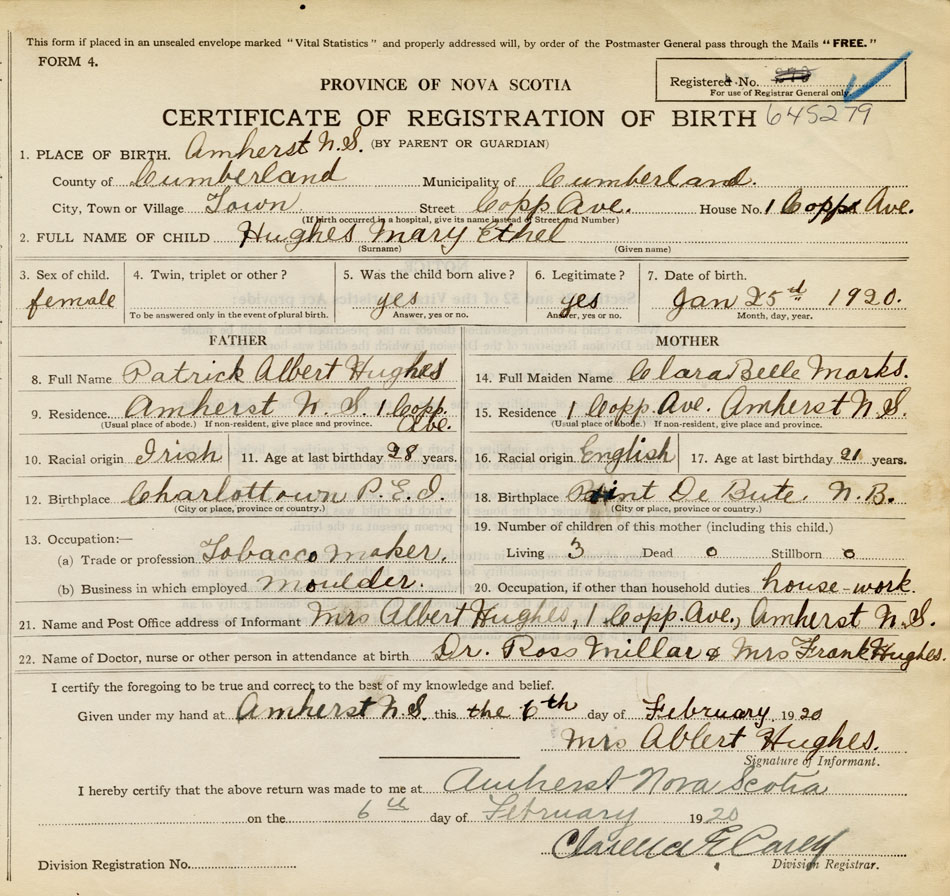 This form if placed in an unsealed envelope marked "Vital Statistics" and properly addressed will, by order of the Postmaster General pass through the Mails "FREE."
FORM 4.
Registered No.
For use of Registrar General only.
PROVINCE OF NOVA SCOTIA
CERTIFICATE OF REGISTRATION OF BIRTH 645279
(BY PARENT OR GUARDIAN)
1. PLACE OF BIRTH. Amherst N.S.
County of Cumberland Municipality of Cumberland.
City, Town or Village Town Street Copp Ave. House No. 1 Copps Ave.
(If birth occurred in a hospital, give its name instead of Street and Number)
2. FULL NAME OF CHILD Hughes Mary Ethel
(Surname) (Given name)
3. Sex of child. 4. Twin, triplet or other? 5. Was the child born alive? 6. Legitimate? 7. Date of birth.
female yes yes Jan 25rd 1920.
To be answered only in the event of plural birth. Answer, yes or no. Answer, yes or no. Month, day, year.
FATHER
8. Full Name Patrick Albert Hughes
9. Residence. Amherst N.S. 1 Copp. Ave.
(Usual place of abode.) If non-resident, give place and province.
10. Racial origin Irish 11. Age at last birthday 28 years.
12. Birthplace Charlottown P.E.I.
(City or place, province or country.)
13. Occupation:—
(a) Trade or profession Tobacco maker.
(b) Business in which employed moulder.
MOTHER
14. Full Maiden Name Clara Belle Marks.
15. Residence. 1 Copp. Ave. Amherst N.S.
(Usual place of abode.) If non-resident, give place and province.
16. Racial origin English 17. Age at last birthday 21 years.
18. Birthplace Point De Bute, N.B.
(City or place, province or country.)
19. Number of children of this mother (including this child.)
Living 3 Dead 0 Stillborn 0
20. Occupation, if other than household duties house-work.
21. Name and Post Office address of Informant Mrs Albert Hughes, 1 Copp. Ave., Amherst N.S.
22. Name of Doctor, nurse or other person in attendance at birth Dr. Ross Millar & Mrs Frank Hughes.
I certify the foregoing to be true and correct to the best of my knowledge and belief.
Given under my hand at Amherst N.S. this the 6th day of February 1920
Mrs Ablert Hughes.
Signature of Informant.
I hereby certify that the above return was made to me at Amherst Nova Scotia
on the 6th day of February 1920
Clarence E Carey
Division Registration No. Division Registrar.